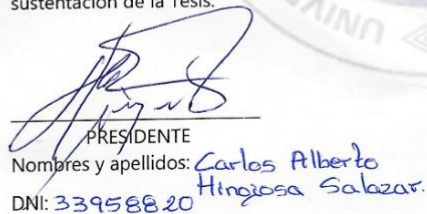 sustentación de la Tesis.
UNIV
PRESIDENTE
Nombres y apellidos: Carlos Alberto
Hinojosa Salazar.
DNI: 33958820